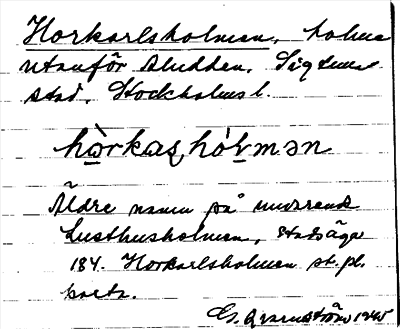 Horkarlsholmen, holme
utanför Sludden, Sigtuna
stad, Stockholms l.
hòrkaʂhólmən
Äldre namn på nuvarande
Lusthusholmen, stadsäga
184. Horkarlsholmen st. pl.
karta.
Es. Qvarnström 1945